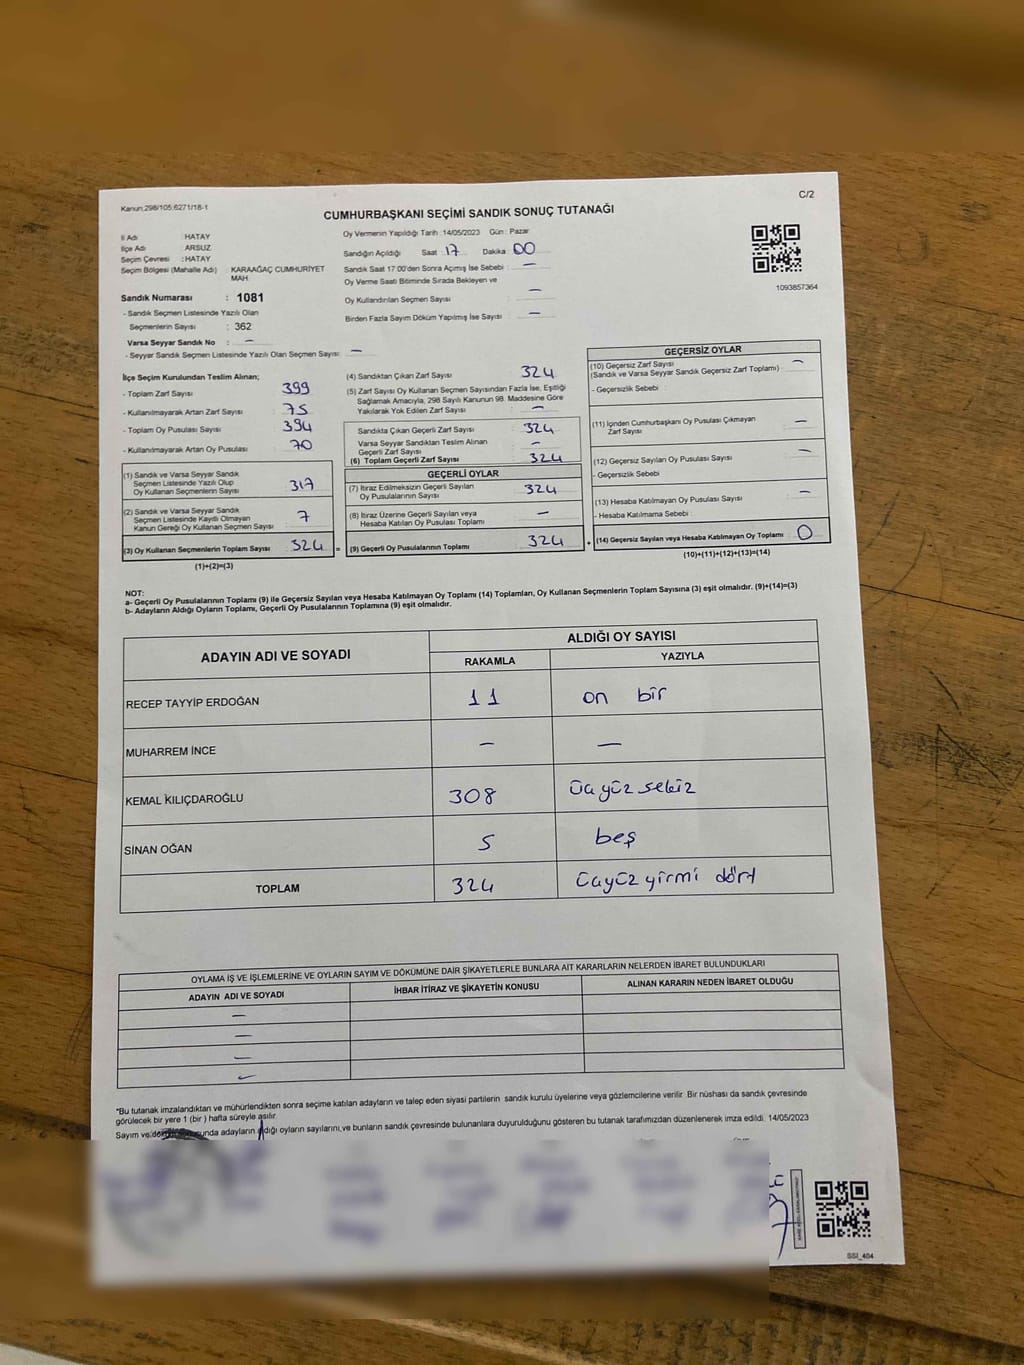 Kanun:298/105;6271/18-1
C/2
CUMHURBAŞKANI SEÇİMİ SANDIK SONUÇ TUTANAĞI
İl Adı HATAY
İlçe Adı ARSUZ
Seçim Çevresi : HATAY
Seçim Bölgesi (Mahalle Adı) : KARAAĞAÇ CUMHURİYET
MAH.
Sandık Numarası : 1081
- Sandık Seçmen Listesinde Yazılı Olan
Seçmenlerin Sayısı : 362
Varsa Seyyar Sandık No : –
- Seyyar Sandık Seçmen Listesinde Yazılı Olan Seçmen Sayısı: –
Oy Vermenin Yapıldığı Tarih :14/05/2023 Gün : Pazar
Sandığın Açıldığı Saat 17 Dakika 00
Sandık Saat 17:00'den Sonra Açımış İse Sebebi : –
Oy Verme Saati Bitiminde Sırada Bekleyen ve
Oy Kullandırılan Seçmen Sayısı : –
Birden Fazla Sayım Döküm Yapılmış İse Sayısı : –
1093857364
İlçe Seçim Kurulundan Teslim Alınan;
- Toplam Zarf Sayısı : 399
- Kullanılmayarak Artan Zarf Sayısı : 75
- Toplam Oy Pusulası Sayısı : 394
- Kullanılmayarak Artan Oy Pusulası : 70
(1) Sandık ve Varsa Seyyar Sandık
Seçmen Listesinde Yazılı Olup
Oy Kullanan Seçmenlerin Sayısı : 317
(2) Sandık ve Varsa Seyyar Sandık
Seçmen Listesinde Kayıtlı Olmayan
Kanun Gereği Oy Kullanan Seçmen Sayısı : 7
(3) Oy Kullanan Seçmenlerin Toplam Sayısı : 324 =
(1)+(2)=(3)
(4) Sandıktan Çıkan Zarf Sayısı : 324
(5) Zarf Sayısı Oy Kullanan Seçmen Sayısından Fazla İse, Eşitliği
Sağlamak Amacıyla, 298 Sayılı Kanunun 98. Maddesine Göre
Yakılarak Yok Edilen Zarf Sayısı : –
Sandıkta Çıkan Geçerli Zarf Sayısı : 324
Varsa Seyyar Sandıktan Teslim Alınan
Geçerli Zarf Sayısı : –
(6) Toplam Geçerli Zarf Sayısı : 324
GEÇERLİ OYLAR
(7) İtiraz Edilmeksizin Geçerli Sayılan
Oy Pusulalarının Sayısı : 324
(8) İtiraz Üzerine Geçerli Sayılan veya
Hesaba Katılan Oy Pusulası Toplamı : –
(9) Geçerli Oy Pusulalarının Toplamı : 324 +
GEÇERSİZ OYLAR
(10) Geçersiz Zarf Sayısı : –
(Sandık ve Varsa Seyyar Sandık Geçersiz Zarf Toplamı)
- Geçersizlik Sebebi :
(11) İçinden Cumhurbaşkanı Oy Pusulası Çıkmayan
Zarf Sayısı : –
(12) Geçersiz Sayılan Oy Pusulası Sayısı : –
- Geçersizlik Sebebi :
(13) Hesaba Katılmayan Oy Pusulası Sayısı : –
- Hesaba Katılmama Sebebi :
(14) Geçersiz Sayılan veya Hesaba Katılmayan Oy Toplamı : 0
(10)+(11)+(12)+(13)=(14)
NOT:
a- Geçerli Oy Pusulalarının Toplamı (9) ile Geçersiz Sayılan veya Hesaba Katılmayan Oy Toplamı (14) Toplamları, Oy Kullanan Seçmenlerin Toplam Sayısına (3) eşit olmalıdır. (9)+(14)=(3)
b- Adayların Aldığı Oyların Toplamı, Geçerli Oy Pusulalarının Toplamına (9) eşit olmalıdır.
ADAYIN ADI VE SOYADI ALDIĞI OY SAYISI
RAKAMLA YAZIYLA
RECEP TAYYİP ERDOĞAN 11 on bir
MUHARREM İNCE – –
KEMAL KILIÇDAROĞLU 308 üçyüz sekiz
SİNAN OĞAN 5 beş
TOPLAM 324 üçyüz yirmi dört
OYLAMA İŞ VE İŞLEMLERİNE VE OYLARIN SAYIM VE DÖKÜMÜNE DAİR ŞİKAYETLERLE BUNLARA AİT KARARLARIN NELERDEN İBARET BULUNDUKLARI
ADAYIN ADI VE SOYADI İHBAR İTİRAZ VE ŞİKAYETİN KONUSU ALINAN KARARIN NEDEN İBARET OLDUĞU
–
–
–
–
*Bu tutanak imzalandıktan ve mühürlendikten sonra seçime katılan adayların ve talep eden siyasi partilerin sandık kurulu üyelerine veya gözlemcilerine verilir. Bir nüshası da sandık çevresinde
görülecek bir yere 1 (bir ) hafta süreyle asılır.
Sayım ve adayların aldığı oyların sayılarını,ve bunların sandık çevresinde bulunanlara duyurulduğunu gösteren bu tutanak tarafımızdan düzenlenerek imza edildi. 14/05/2023
SSI_404